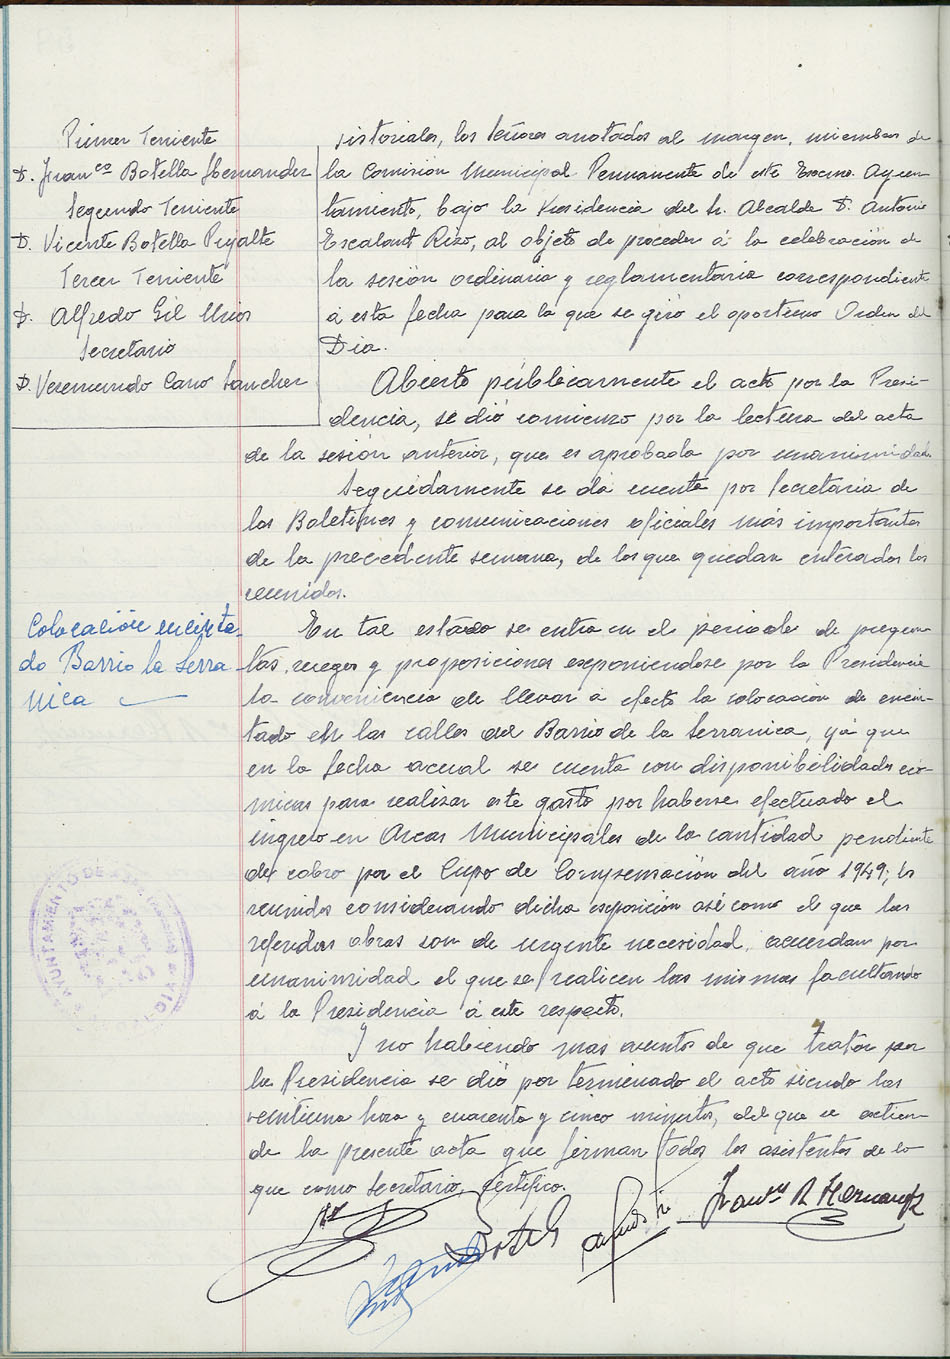 Primer Teniente
D. Franco Botella Hernandez
Segundo Teniente
D. Vicente Botella Puyalte
Tercer Teniente
D. Alfredo Gil Mrios
Secretario
D. Veremundo Cano Sanchez
sistoriales, los Señores anotados al margen, miembros de
la Comisión Municipal Permanente de este Excmo. Ayun-
tamiento, bajo la Presidencia del Sr. Alcalde D. Antonio
Escalant Rizo, al objeto de proceder á la celebración de
la sesión ordinaria y reglamentaria correspondiente
a esta fecha para la que se giró el oportuno Orden del
Dia.
Abierto públicamente el acto por la Presi-
dencia, se dió comienzo por la lectura del acta
de la sesión anterior, que es aprobada por unanimidad.
Seguidamente se dá cuenta por Secretaria de
los Boletines y comunicaciones oficiales más importantes
de la precedente semana, de los que quedan enterados los
reunidos.
Colocación encinta-
do Barrio la Serra-
nica
En tal estado se entra en el periodo de pregun-
tas, ruegos y proposiciones exponiendose por la Presidencia
la conveniencia de llevar a efecto la colocación de encin-
tado en las calles del Barrio de la Serranica, yá que
en la fecha acual se cuenta con disponibilidades eco-
micas para realizar este gasto por haberse efectuado el
ingreso en Arcas Municipales de la cantidad pendiente
de cobro por el Cupo de Compensación del año 1949; los
reunidos considerando dicha exposición así como el que las
referidas obras son de urgente necesidad, acuerdan por
unanimidad el que se realicen las mismas facultando
á la Presidencia á este respecto.
Y no habiendo mas asuntos de que tratar por
la Presidencia se dió por terminado el acto siendo las
veintiuna hora y cuarenta y cinco minutos, del que se extien-
de la presente acta que firman todos los asistentes de lo
que como Secretario, certifico.
AYUNTAMIENTO DE
Botell